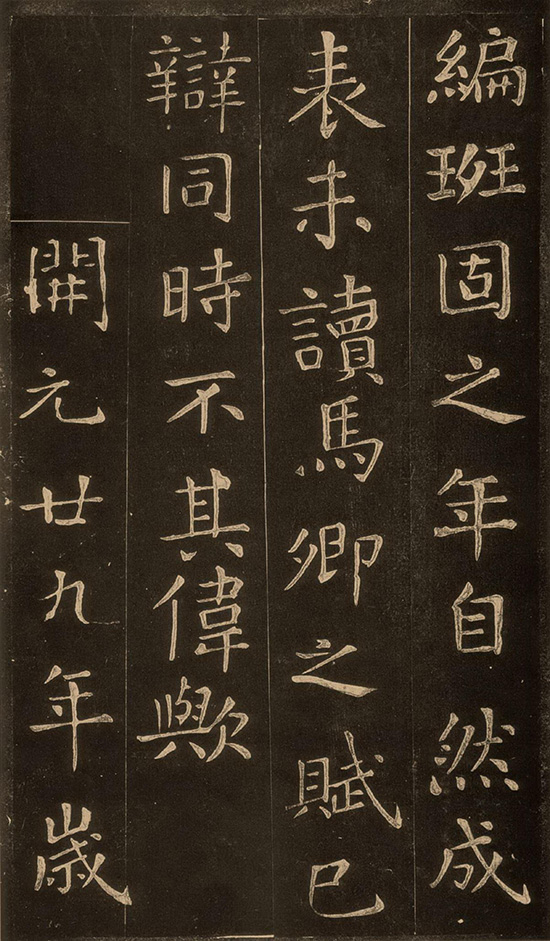 編班固之年自然成
表未讀馬卿之賦已
辯同時不其偉歟
開元廿九年歲